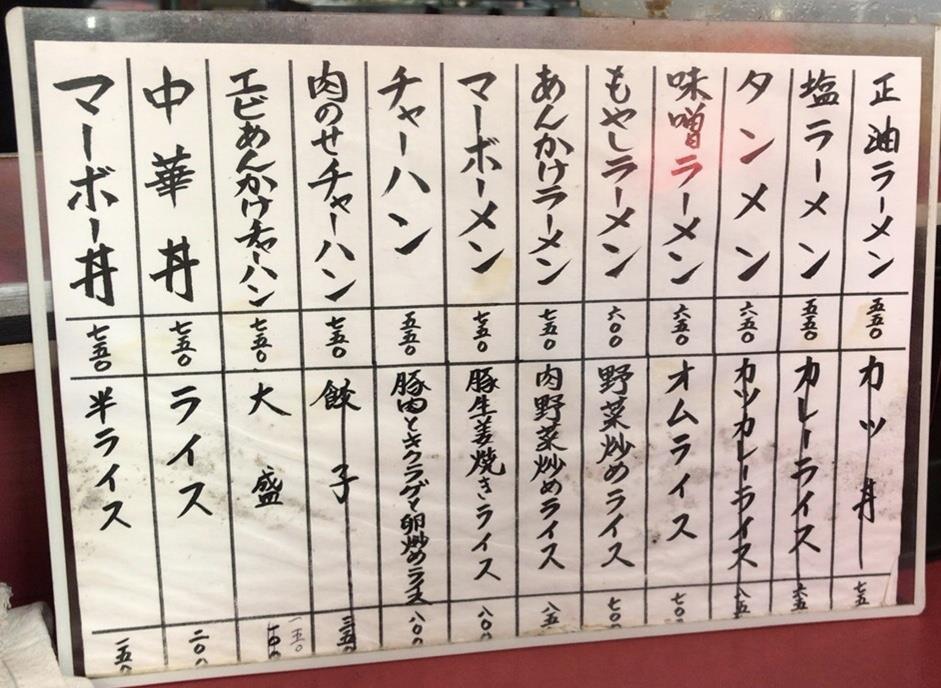 正油ラーメン 五五〇
塩ラーメン 五五〇
タンメン 六五〇
味噌ラーメン 六五〇
もやしラーメン 六〇〇
あんかけラーメン 七五〇
マーボーメン 七五〇
チャーハン 五五〇
肉のせチャーハン 七五〇
エビあんかけチャーハン 七五〇
中華丼 七五〇
マーボー丼 七五〇
カツ丼 七五
カレーライス 六五
カツカレーライス 八五
オムライス 七〇
野菜炒めライス 七〇
肉野菜炒めライス 八五
豚生姜焼きライス 八〇
豚肉とキクラゲと卵炒めライス 八〇
餃子 三五〇
大盛 一五〇
ライス 二〇〇
半ライス 一五〇